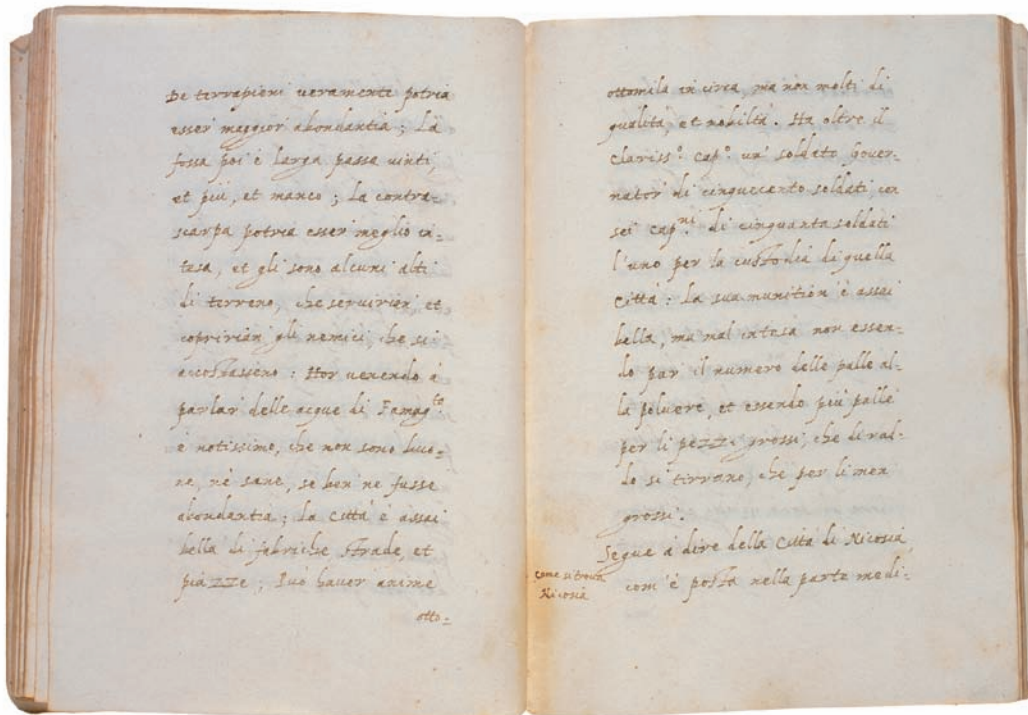 De terrapieni veramente potria
esser maggior abondantia; La
fossa poi è larga passa vinti,
et più, et manco; La contra=
scarpa potria esser meglio in=
tesa, et gli sono alcuni alti
di terreno, che servirian, et
copririan gli nemici, che si
accostasseno: Hor venendo à
parlar delle acque di Famag.ta
è notissimo, che non sono buo=
ne, nè sane, se ben ne fusse
abondantia; La Città è assai
bella di fabriche strade, et
piazze; Può haver anime
otto=
ottomila in circa, ma non molti di
qualità, et nobiltà. Ha oltre il
Clariss.o Cap.o un' soldato Gover=
nator di cinquecento soldati, con
sei cap.ni di cinquanta soldati
l'uno per la custodia di quella
Città: La sua munition è assai
bella, ma mal intesa non essen=
do par il numero delle palle al=
la polvere, et essendo più palle
per li pezzi grossi, che di ral=
do si tirrano, che per li men
grossi.
Segue à dire della Città di Nicosia,
come si trova
Nicosia
com'è posta nella parte medi=